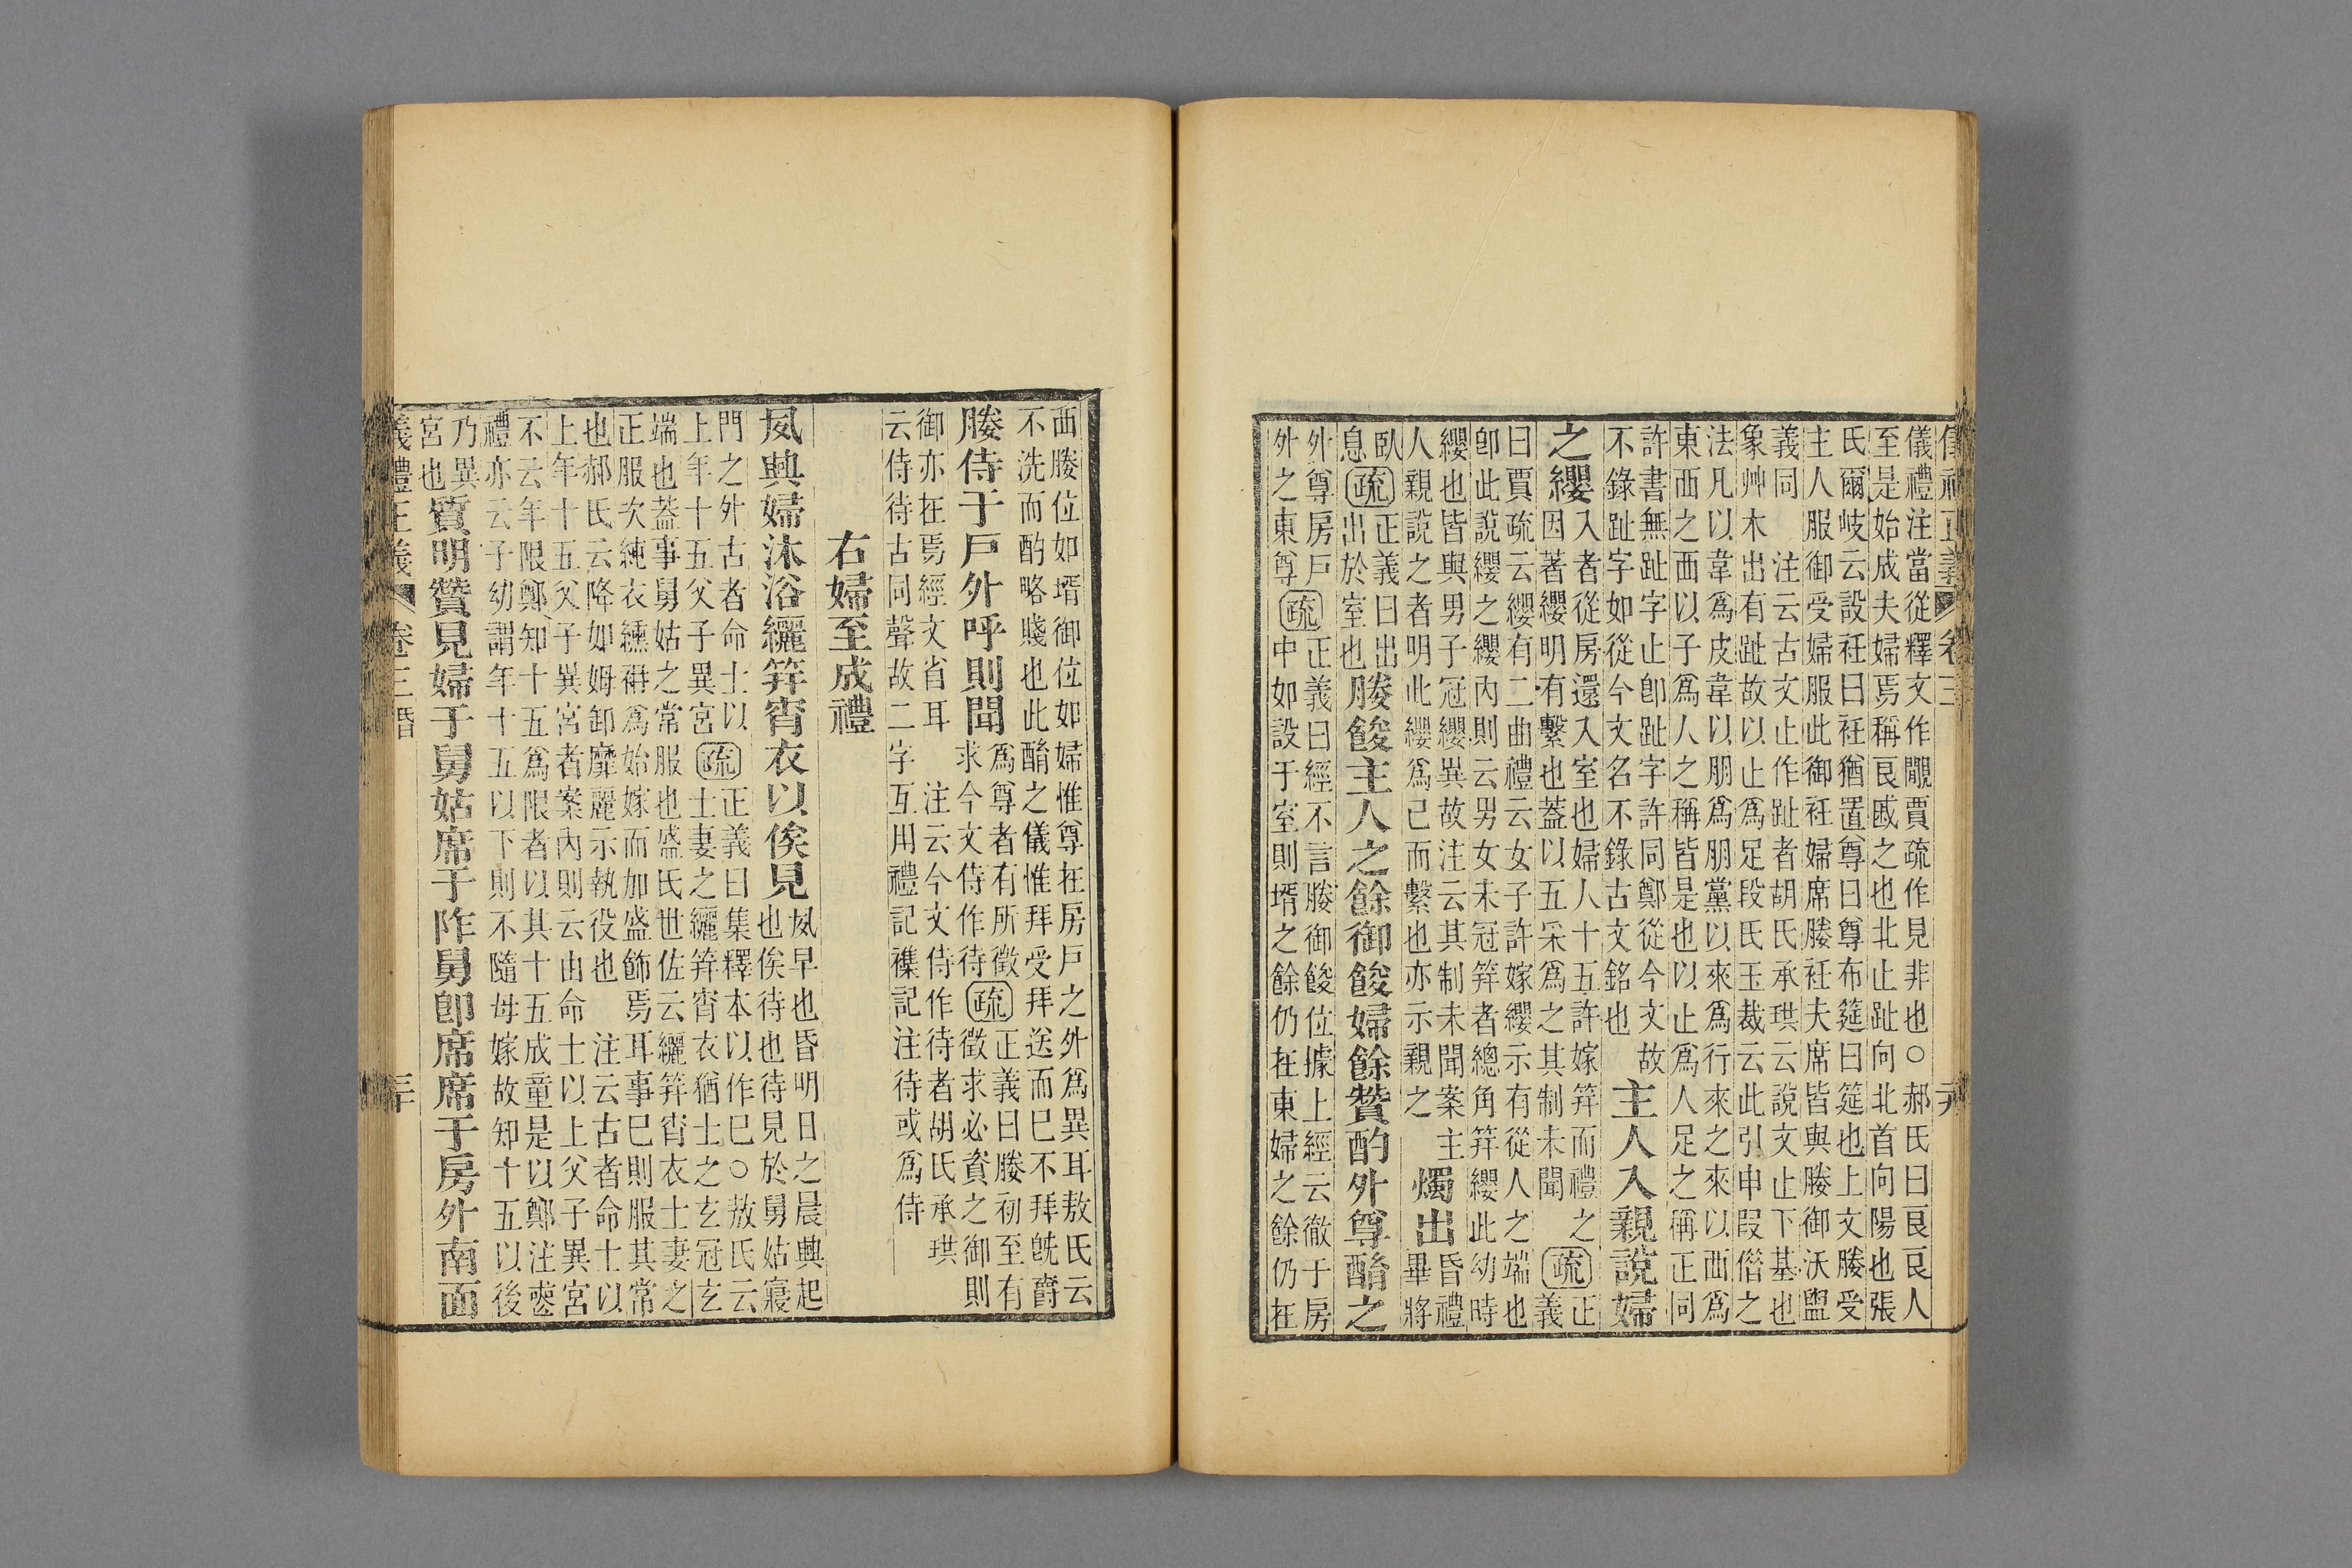 儀禮正義 卷三 元
儀禮注當從釋文作覵賈疏作見非也○郝氏曰良良人
至是始成夫婦焉稱良㦽之也北止趾向北首向陽也張
氏爾岐云設衽曰衽猶置尊曰尊布筵曰筵也上文媵受
主人服御受婦服此御衽婦席媵衽夫席皆與媵御沃盥
義同 注云古文止作趾者胡氏承珙云說文止下基也
象艸木出有趾故以止爲足段氏玉裁云此引申叚僭之
法凡以韋爲皮韋以朋爲朋黨以來爲行來之來以西爲
東西之西以子爲人之稱皆是也以止爲人足之稱正同
許書無趾字止卽趾字許同鄭從今文故
不錄趾字如從今文名不錄古文銘也
主人入親說婦
之纓
入者從房還入室也婦人十五許嫁笄而禮之
因著纓明有繫也蓋以五采爲之其制未聞
疏
正
義
曰賈疏云纓有二曲禮云女子許嫁纓示有從人之端也
卽此說纓之纓內則云男女未冠笄者總角笄纓此幼時
纓也皆與男子冠纓異故注云其制未聞案主
人親說之者明此纓爲己而繫也亦示親之
燭出
昏禮
畢將
臥
息
疏
正義曰出
出於室也
媵餕主人之餘御餕婦餘贊酌外尊酳之
外尊房戶
外之東尊
疏
正義曰經不言媵御餕位據上經云徹于房
中如設于室則壻之餘仍在東婦之餘仍在
西媵位如壻御位如婦惟尊在房戶之外爲異耳敖氏云
不洗而酌略賤也此酳之儀惟拜受拜送而已不拜旣爵
媵侍于戶外呼則聞
爲尊者有所徵
求今文侍作待
疏
正義曰媵初至有
徵求必資之御則
御亦在焉經文省耳 注云今文侍作待者胡氏承珙
云侍待古同聲故二字互用禮記襍記注待或爲侍
右婦至成禮
夙興婦沐浴纚笄宵衣以俟見
夙早也昏明日之晨興起
也俟待也待見於舅姑寢
門之外古者命士以
上年十五父子異宮
疏
正義曰集釋本以作已○敖氏云
士妻之纚笄宵衣猶士之玄冠玄
端也蓋事舅姑之常服也盛氏世佐云纚笄宵衣士妻之
正服次純衣纁袡爲始嫁而加盛飾焉耳事已則服其常
也郝氏云降如姆卸靡麗示執役也 注云古者命士以
上年十五父子異宮者案內則云由命士以上父子異宮
不云年限鄭知十五爲限者以其十五成童是以鄭注䘮
禮亦云子幼謂年十五以下則不隨母嫁故知十五以後
乃異
宮也
質明贊見婦于舅姑席于阼舅卽席席于房外南面
義禮正義 卷三 昏 三十